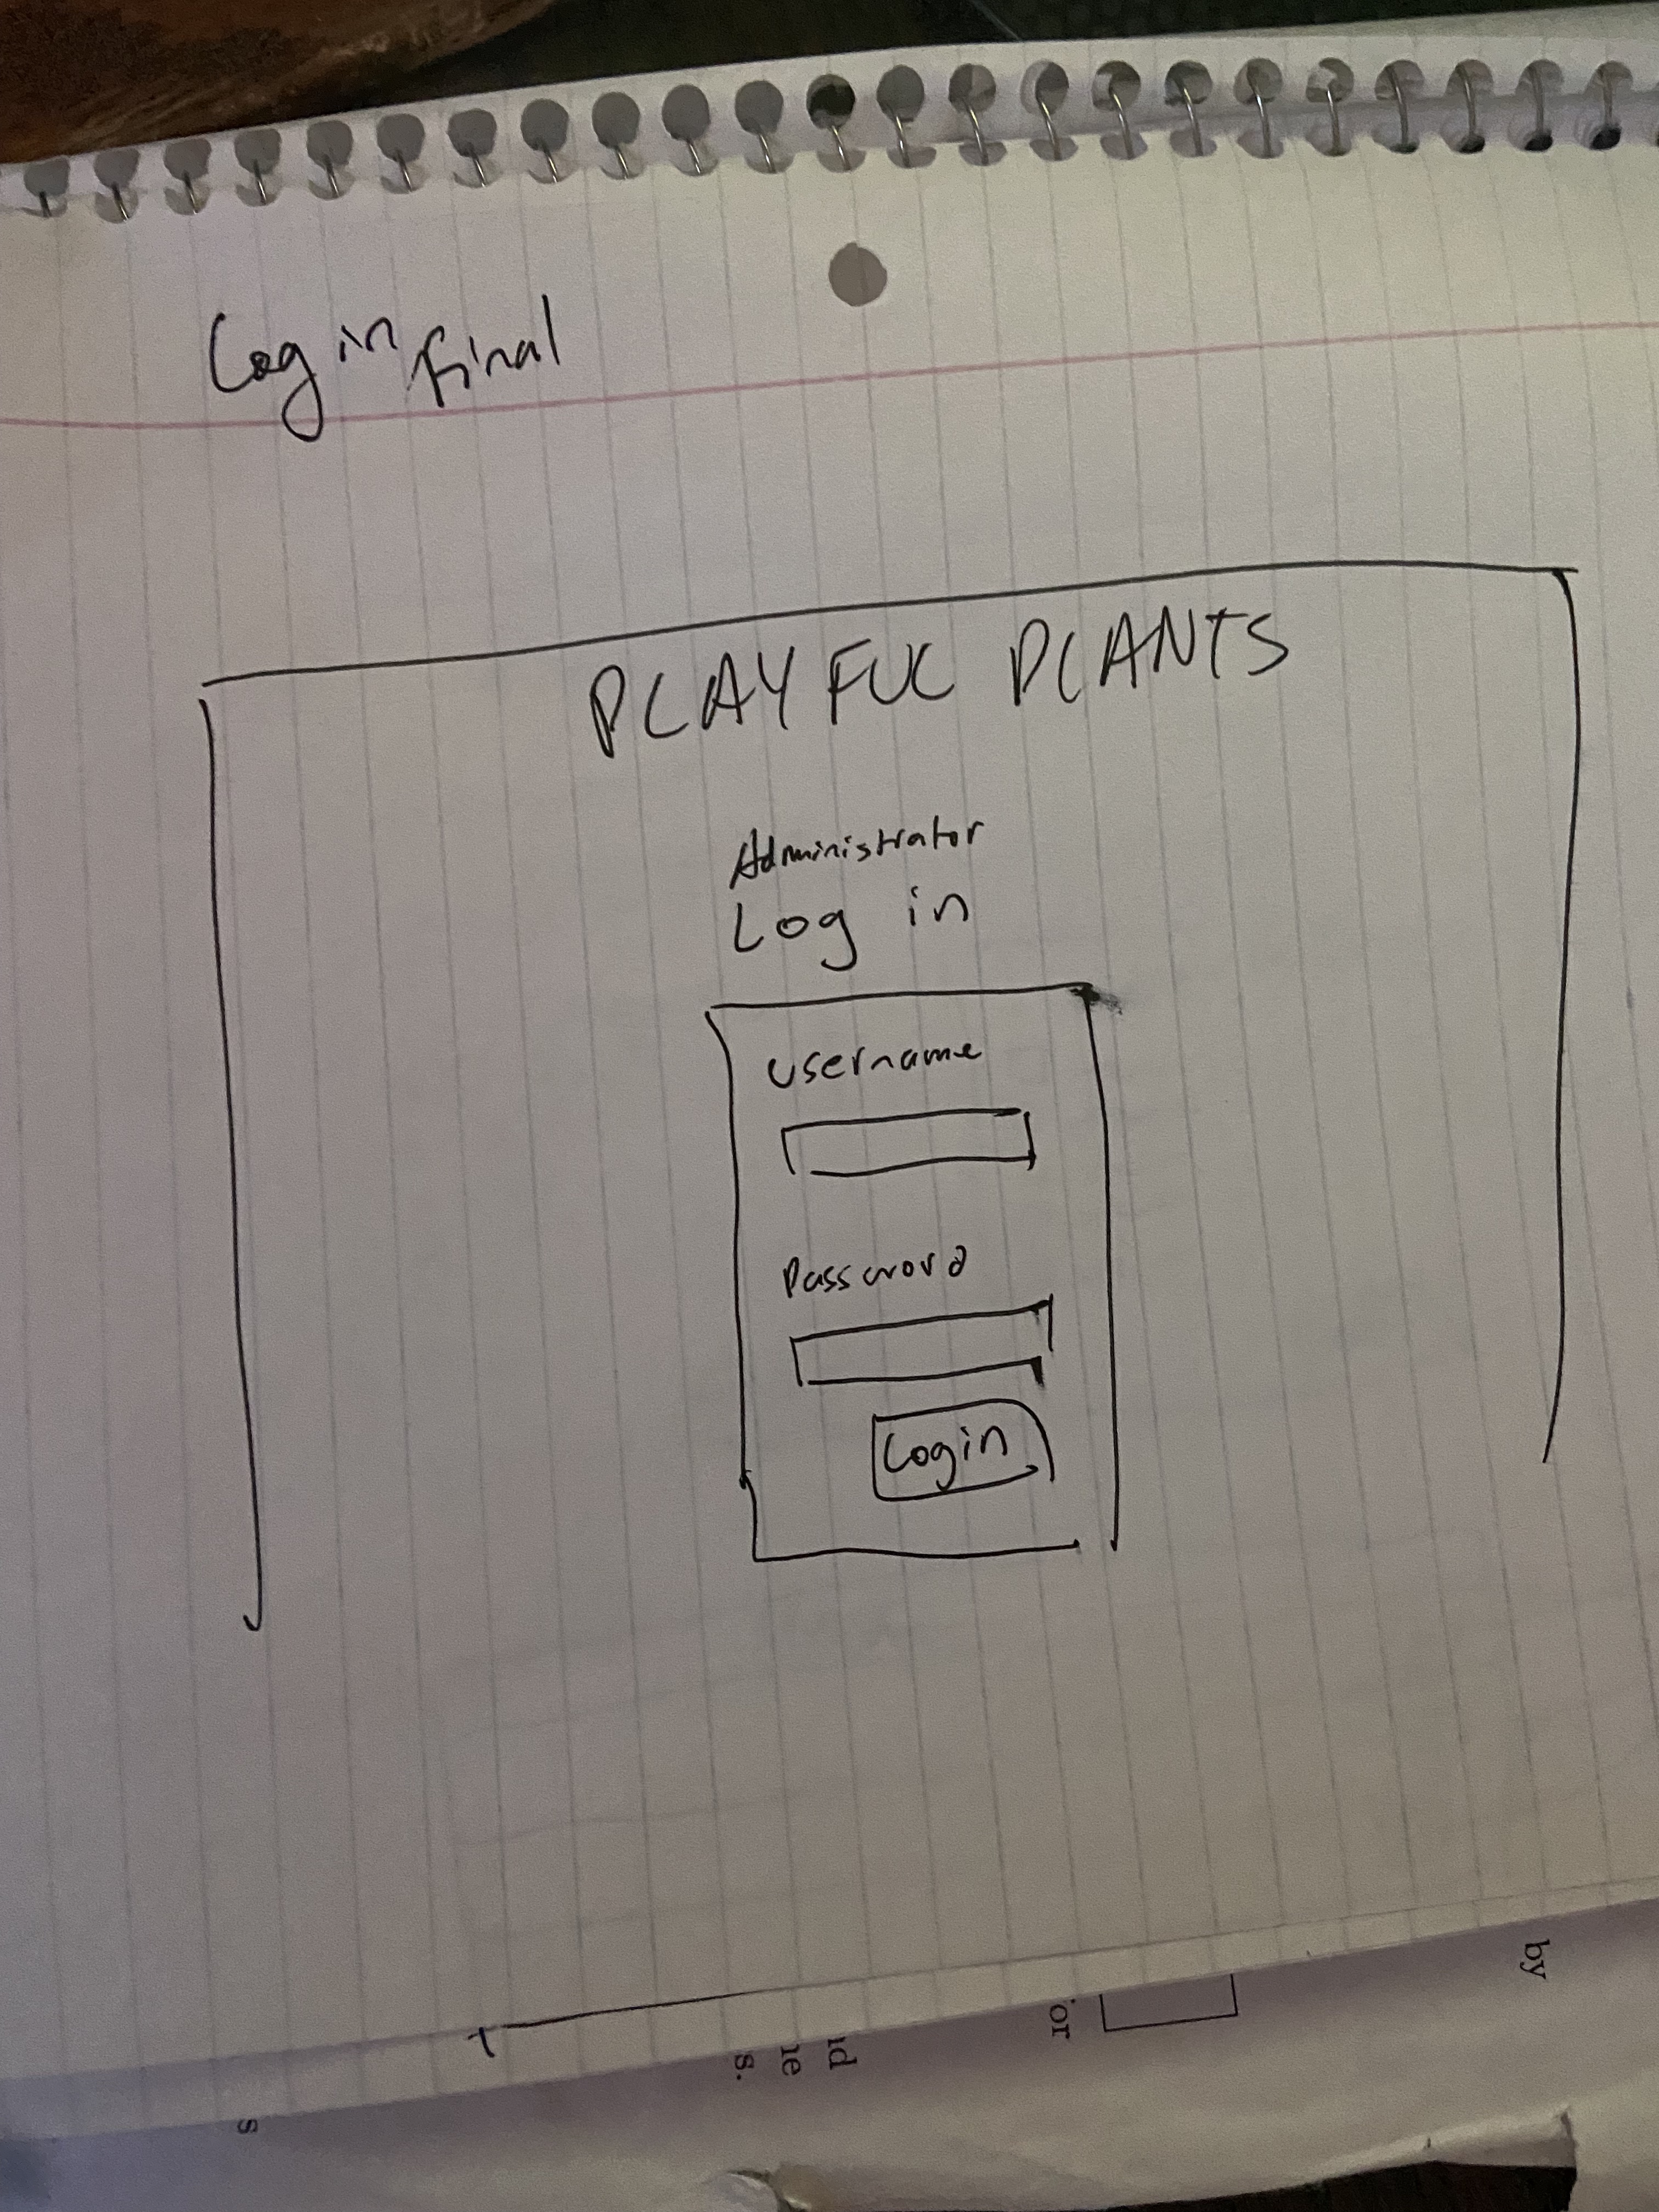 Log in final
PLAYFUL PLANTS
Administrator
Log in
username
Password
Login
by
or
s